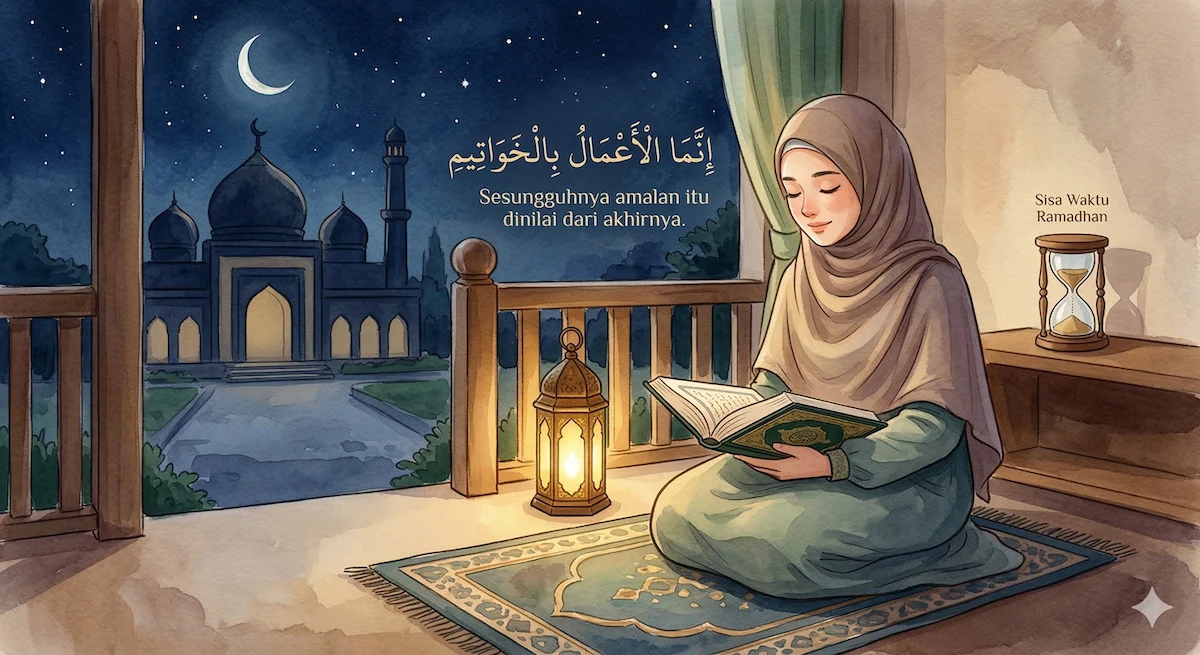 إِنَّمَا الْأَعْمَالُ بِالْخَوَاتِيمِ
Sesungguhnya amalan itu
dinilai dari akhirnya.
Sisa Waktu
Ramadhan